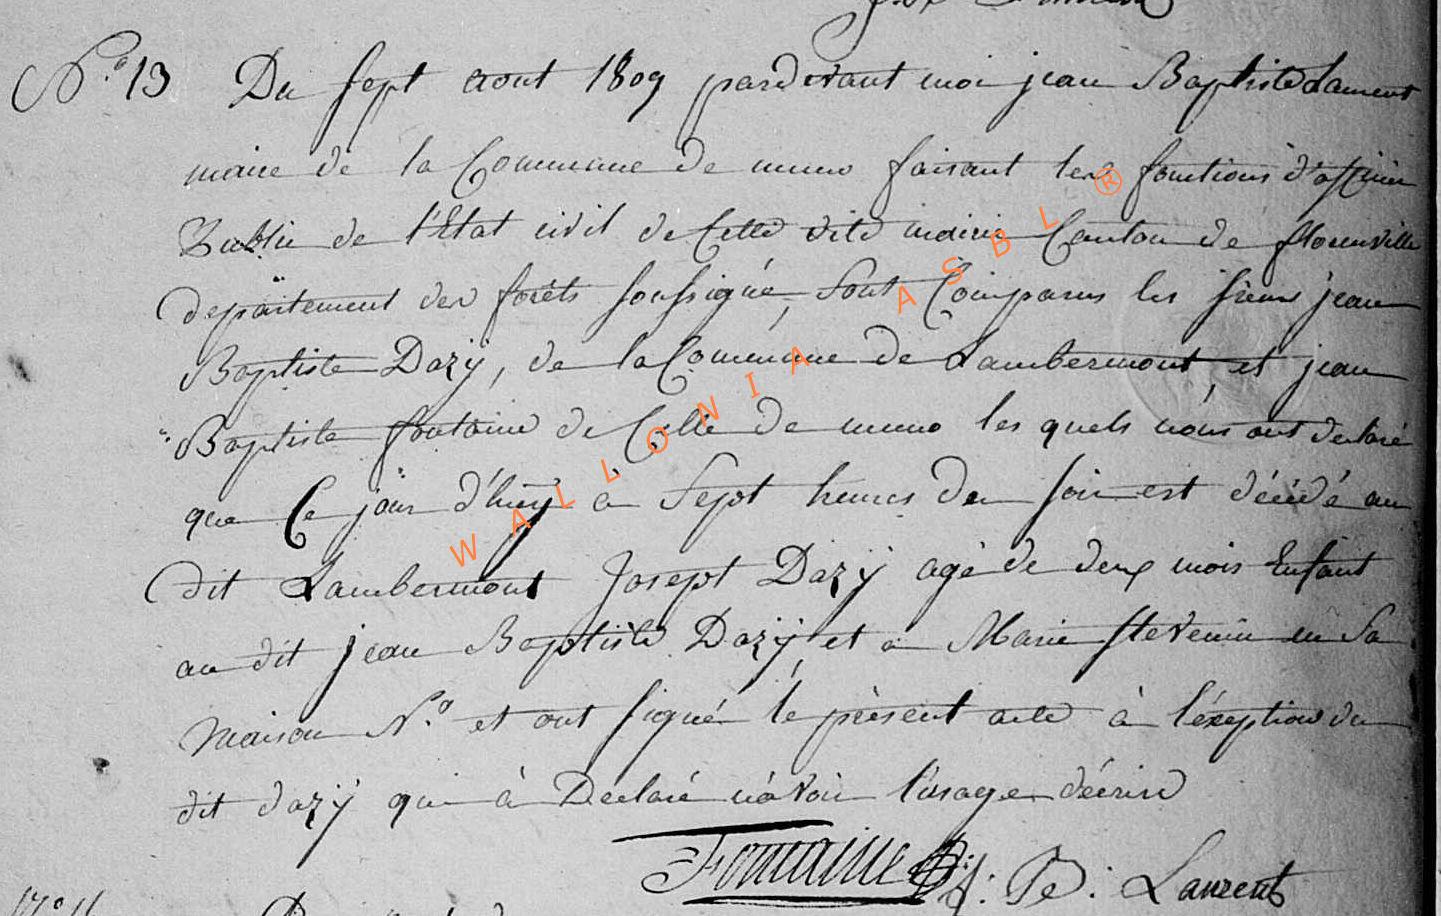 N.o 13 Du sept aout 1809 pardevant moi jean Baptiste Laurent
maire de la Commune de muno faisant les fonctions d'officier
Public de l'Etat civil de Celle dite mairie Canton de florenville
departement des forèts soussigné, sont Comparus les sieurs jean
Baptiste Dazÿ, de la Commune de Lambermont, et jean
Baptiste fontaine de Celle de muno les quels nous ont declaré
que Ce jour d'huÿ a Sept heures du soir est décédé au
dit Lambermont Josept Dazÿ agé de deux mois Enfant
au dit jean Baptiste Dazÿ, et a Marie stevenin en sa
maison N.o et ont signé le présent acte à l'éxeption du
dit dazÿ qui à Declaré n'avoir l'usage d'écrire
Fontaine J: B: Laurent
WALLONIA ASBL ®